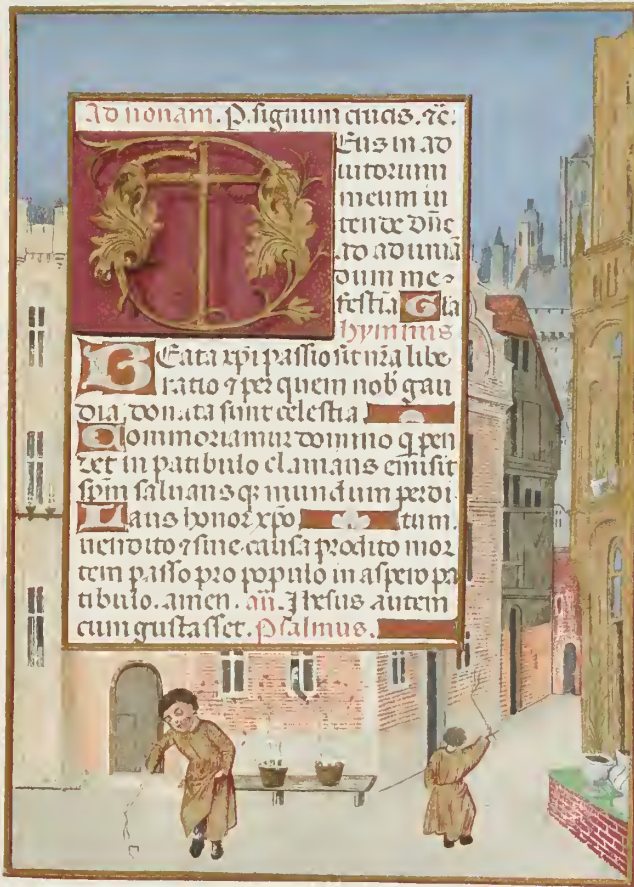 Ad nonam. P. signum crucis. ⁊c̄.
Deus in ad
iutorium
meum in
tende dn̄e
ad adiuuā
dum me
festīa Gla
hymnus
BEata xp̄i passio sit nr̄a libe
ratio ⁊ per quem nob̄ gau
dia, donata sunt celestia
Commoriamur domino q̄ pen
det in patibulo clamans emisit
sp̄m saluans q; mundum perdi
Laus honor xp̄o tum.
uendito ⁊ sine causa prodito mor
tem passo pro popolo in aspero pa
tibulo. amen. añ. Ihesus autem
cum gustasset. Psalmus.